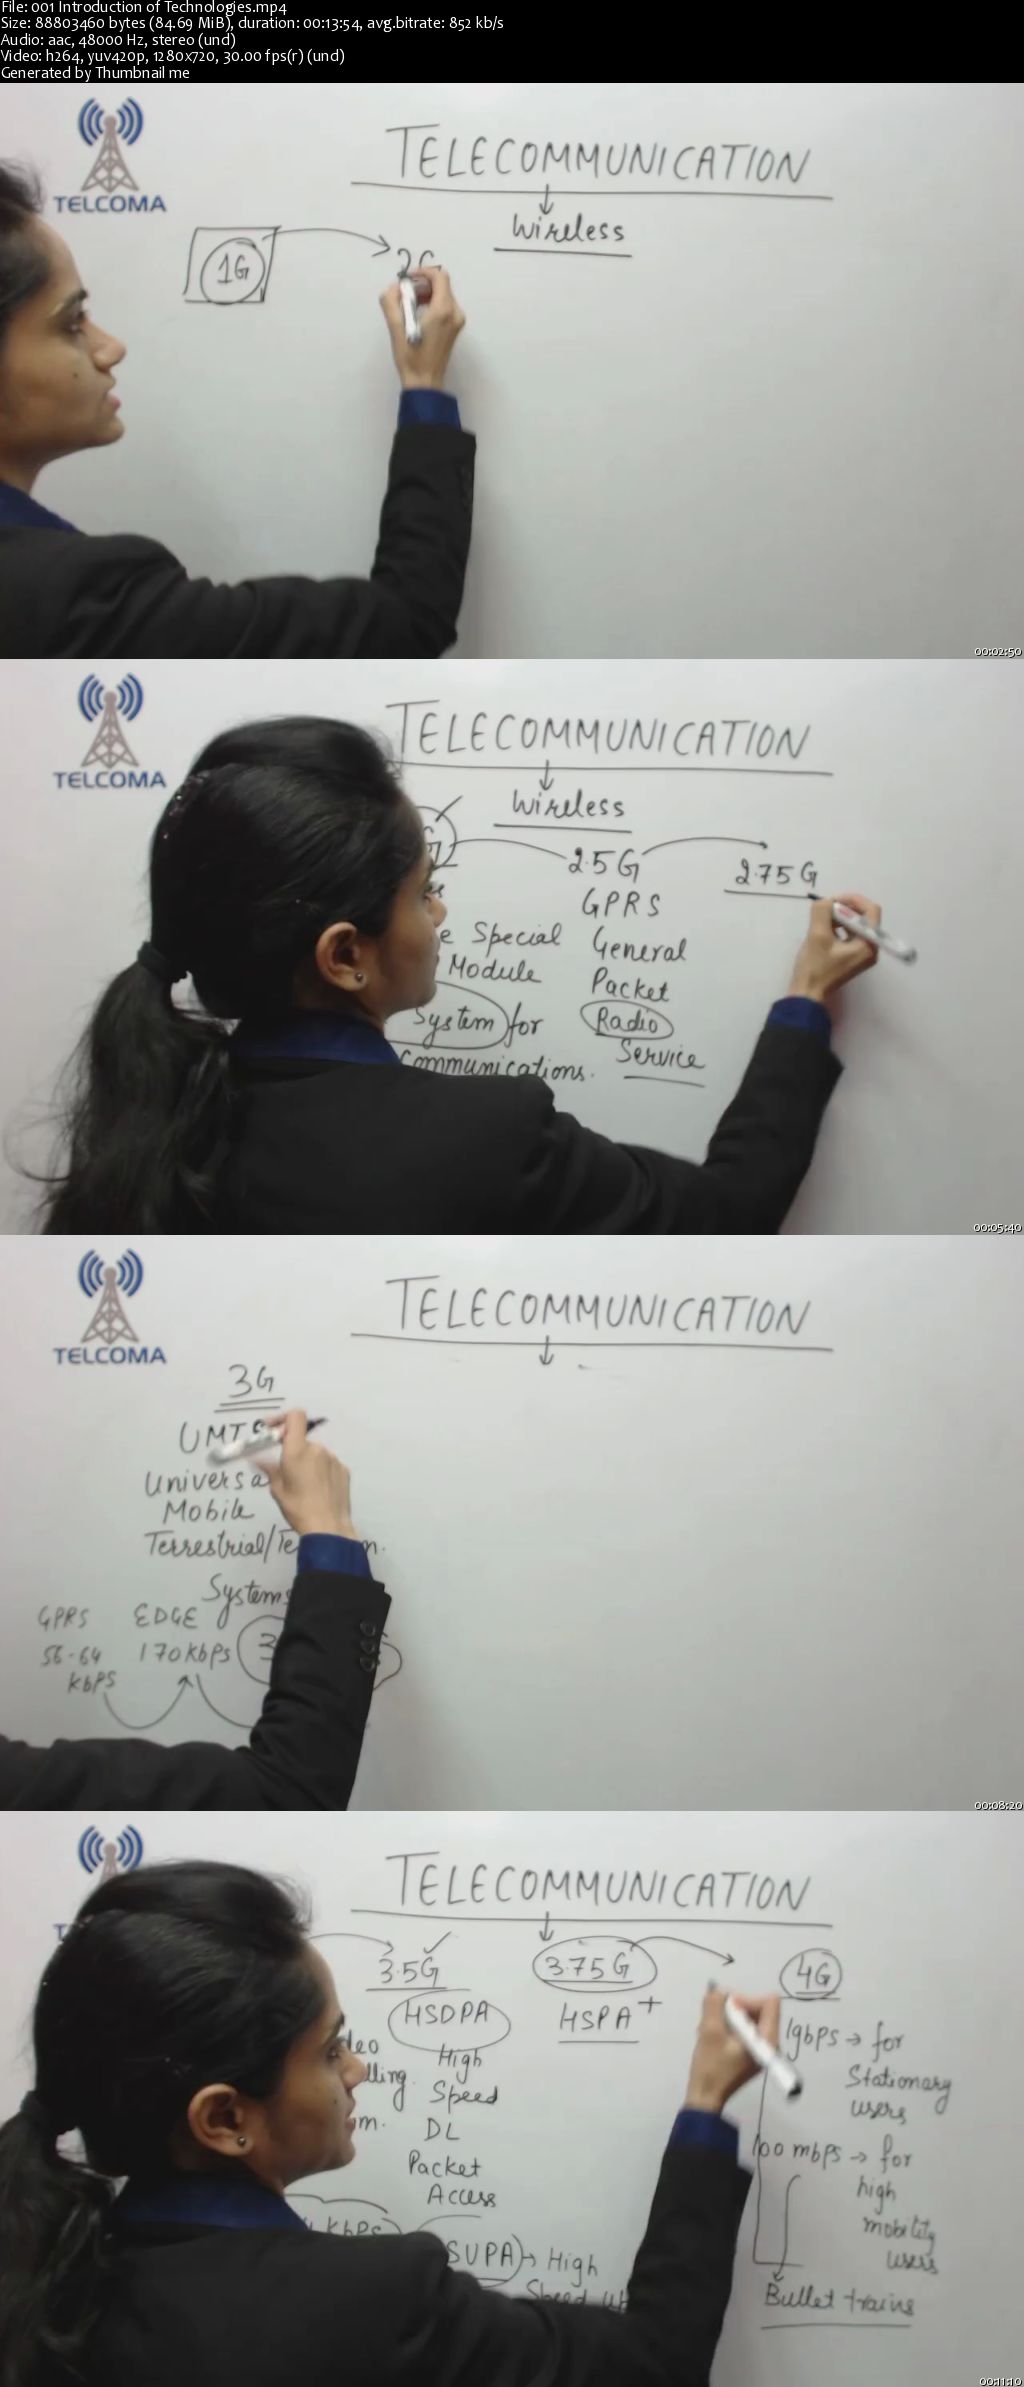 File: 001 Introduction of Technologies.mp4
Size: 88803460 bytes (84.69 MiB), duration: 00:13:54, avg.bitrate: 852 kb/s
Audio: aac, 48000 Hz, stereo (und)
Video: h264, yuv420p, 1280x720, 30.00 fps(r) (und)
Generated by Thumbnail me
TELCOMA
TELECOMMUNICATION
Wireless
1G
2G
00:02:50
TELCOMA
TELECOMMUNICATION
Wireless
2.5G
2.75G
GPRS
Special
General
Module
Packet
System for
Radio
Communications.
Service
00:05:40
TELCOMA
TELECOMMUNICATION
3G
UMTS
Universa
Mobile
Terrestrial/Te
Systems
GPRS EDGE
56-64 170kbps
kbps
00:08:20
TELECOMMUNICATION
3.5G
3.75G
4G
HSDPA
HSPA+
1gbps → for
Stationary
users
High
Speed
DL
Packet
Access
100 mbps → for
high
mobility
users
kbps
SUPA → High
Speed
Bullet trains
00:11:10